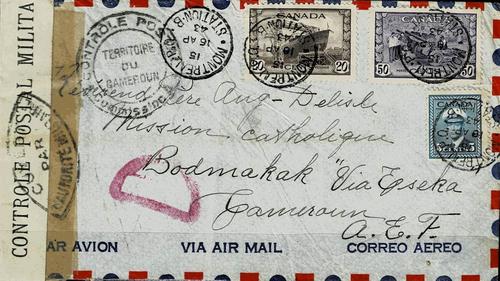 CONTROLE POSTAL MILITA
CONTROLE POS
TERRITOIRE
DU
CAMEROUN
Commission
MONTREAL
STATION-B
15
16 AP
43
CANADA
20 20
CANADA
50 50
CANADA
5 CENTS 5
OUVERT
PAR
L'AUTORITE
Révérend
Père Aug- Delisle
Mission Catholique
Bodmakak "Via Eseka
Cameroun
A. E. F.
AR AVION
VIA AIR MAIL
CORREO AEREO